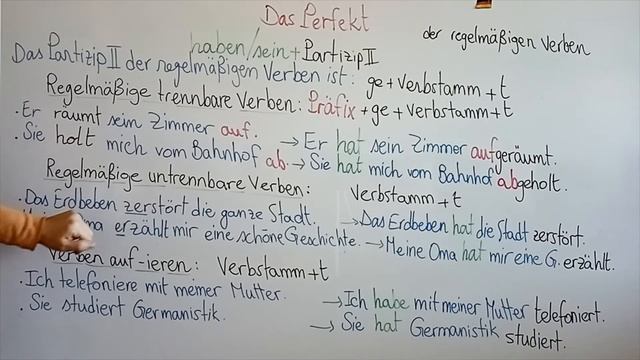 Das Perfekt
der regelmäßigen Verben
haben/sein + Partizip II
Das Partizip II der regelmäßigen Verben ist: ge + Verbstamm + t
Regelmäßige trennbare Verben: Präfix + ge + Verbstamm + t
. Er räumt sein Zimmer auf. → Er hat sein Zimmer aufgeräumt.
. Sie holt mich vom Bahnhof ab. → Sie hat mich vom Bahnhof abgeholt.
Regelmäßige untrennbare Verben: Verbstamm + t
. Das Erdbeben zerstört die ganze Stadt. → Das Erdbeben hat die Stadt zerstört.
erzählt mir eine schöne Geschichte. → Meine Oma hat mir eine G. erzählt.
Verben auf -ieren: Verbstamm + t
. Ich telefoniere mit meiner Mutter. → Ich habe mit meiner Mutter telefoniert.
. Sie studiert Germanistik. → Sie hat Germanistik studiert.